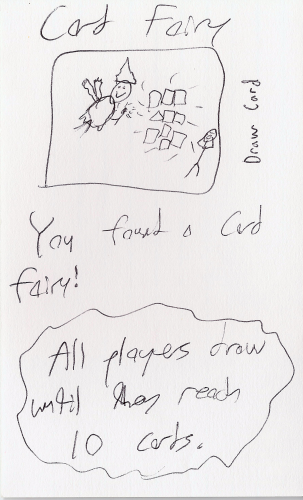 Card Fairy
Draw Card
You found a Card
Fairy!
All players draw
until they reach
10 cards.